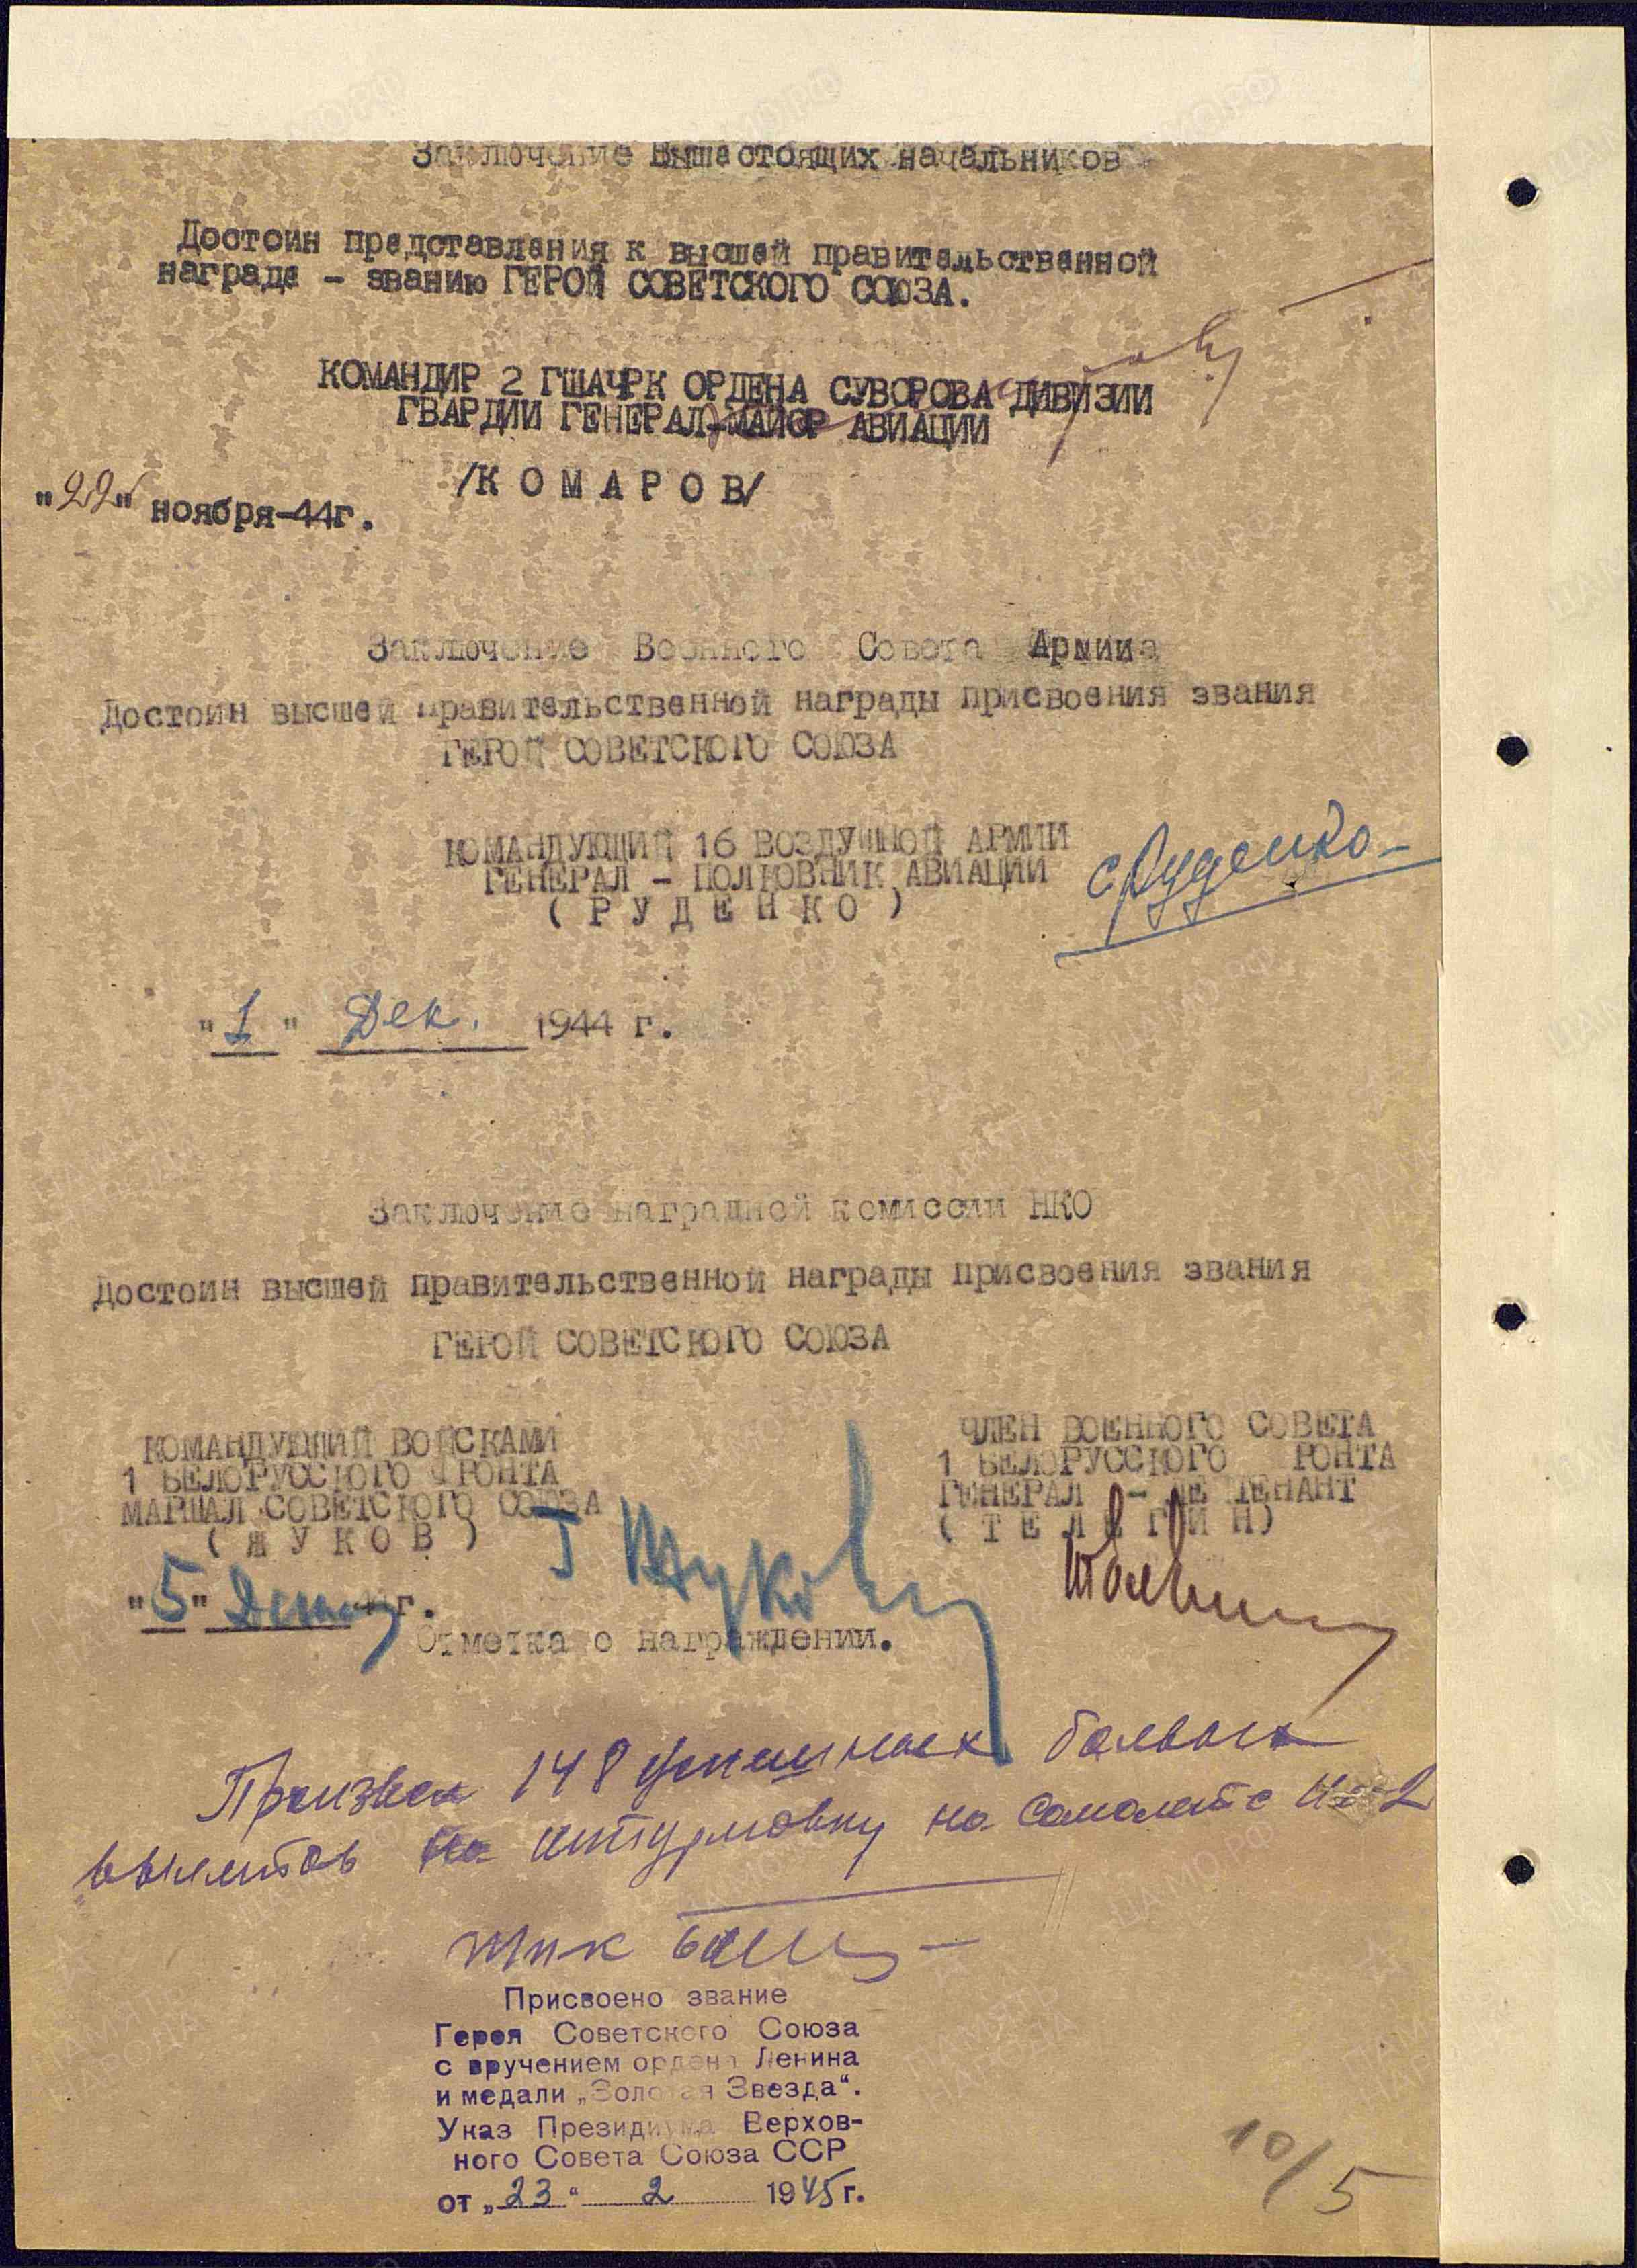 Заключение Вышестоящих начальников
Достоин представления к высшей правительственной
награде – званию ГЕРОЙ СОВЕТСКОГО СОЮЗА.
КОМАНДИР 2 ГШАЧРК ОРДЕНА СУВОРОВА ДИВИЗИИ
ГВАРДИИ ГЕНЕРАЛ-МАЙОР АВИАЦИИ
/К О М А Р О В/
"22" ноября-44г.
Заключение Военного Совета Армии
Достоин высшей правительственной награды присвоения звания
ГЕРОЙ СОВЕТСКОГО СОЮЗА
КОМАНДУЮЩИЙ 16 ВОЗДУШНОЙ АРМИИ
ГЕНЕРАЛ – ПОЛКОВНИК АВИАЦИИ
( Р У Д Е Н К О )
СРуденко
"1" Дек. 1944 г.
Заключение наградной комиссии НКО
Достоин высшей правительственной награды присвоения звания
ГЕРОЙ СОВЕТСКОГО СОЮЗА
КОМАНДУЮЩИЙ ВОЙСКАМИ
1 БЕЛОРУССКОГО ФРОНТА
МАРШАЛ СОВЕТСКОГО СОЮЗА
( Ж У К О В )
Г Жуков
"5" г.
ЧЛЕН ВОЕННОГО СОВЕТА
1 БЕЛОРУССКОГО РОНТА
ГЕНЕРАЛ – ЛЕ ТЕНАНТ
( Т Е Л Е Г И Н )
Отметка о награждении.
Произвел 148 успешных боевых
вылетов на штурмовку на самолете Ил-2
Присвоено звание
Героя Советского Союза
с вручением ордена Ленина
и медали „Золотая Звезда“.
Указ Президиума Верхов-
ного Совета Союза ССР
от „23“ 2 1945г.
10/5